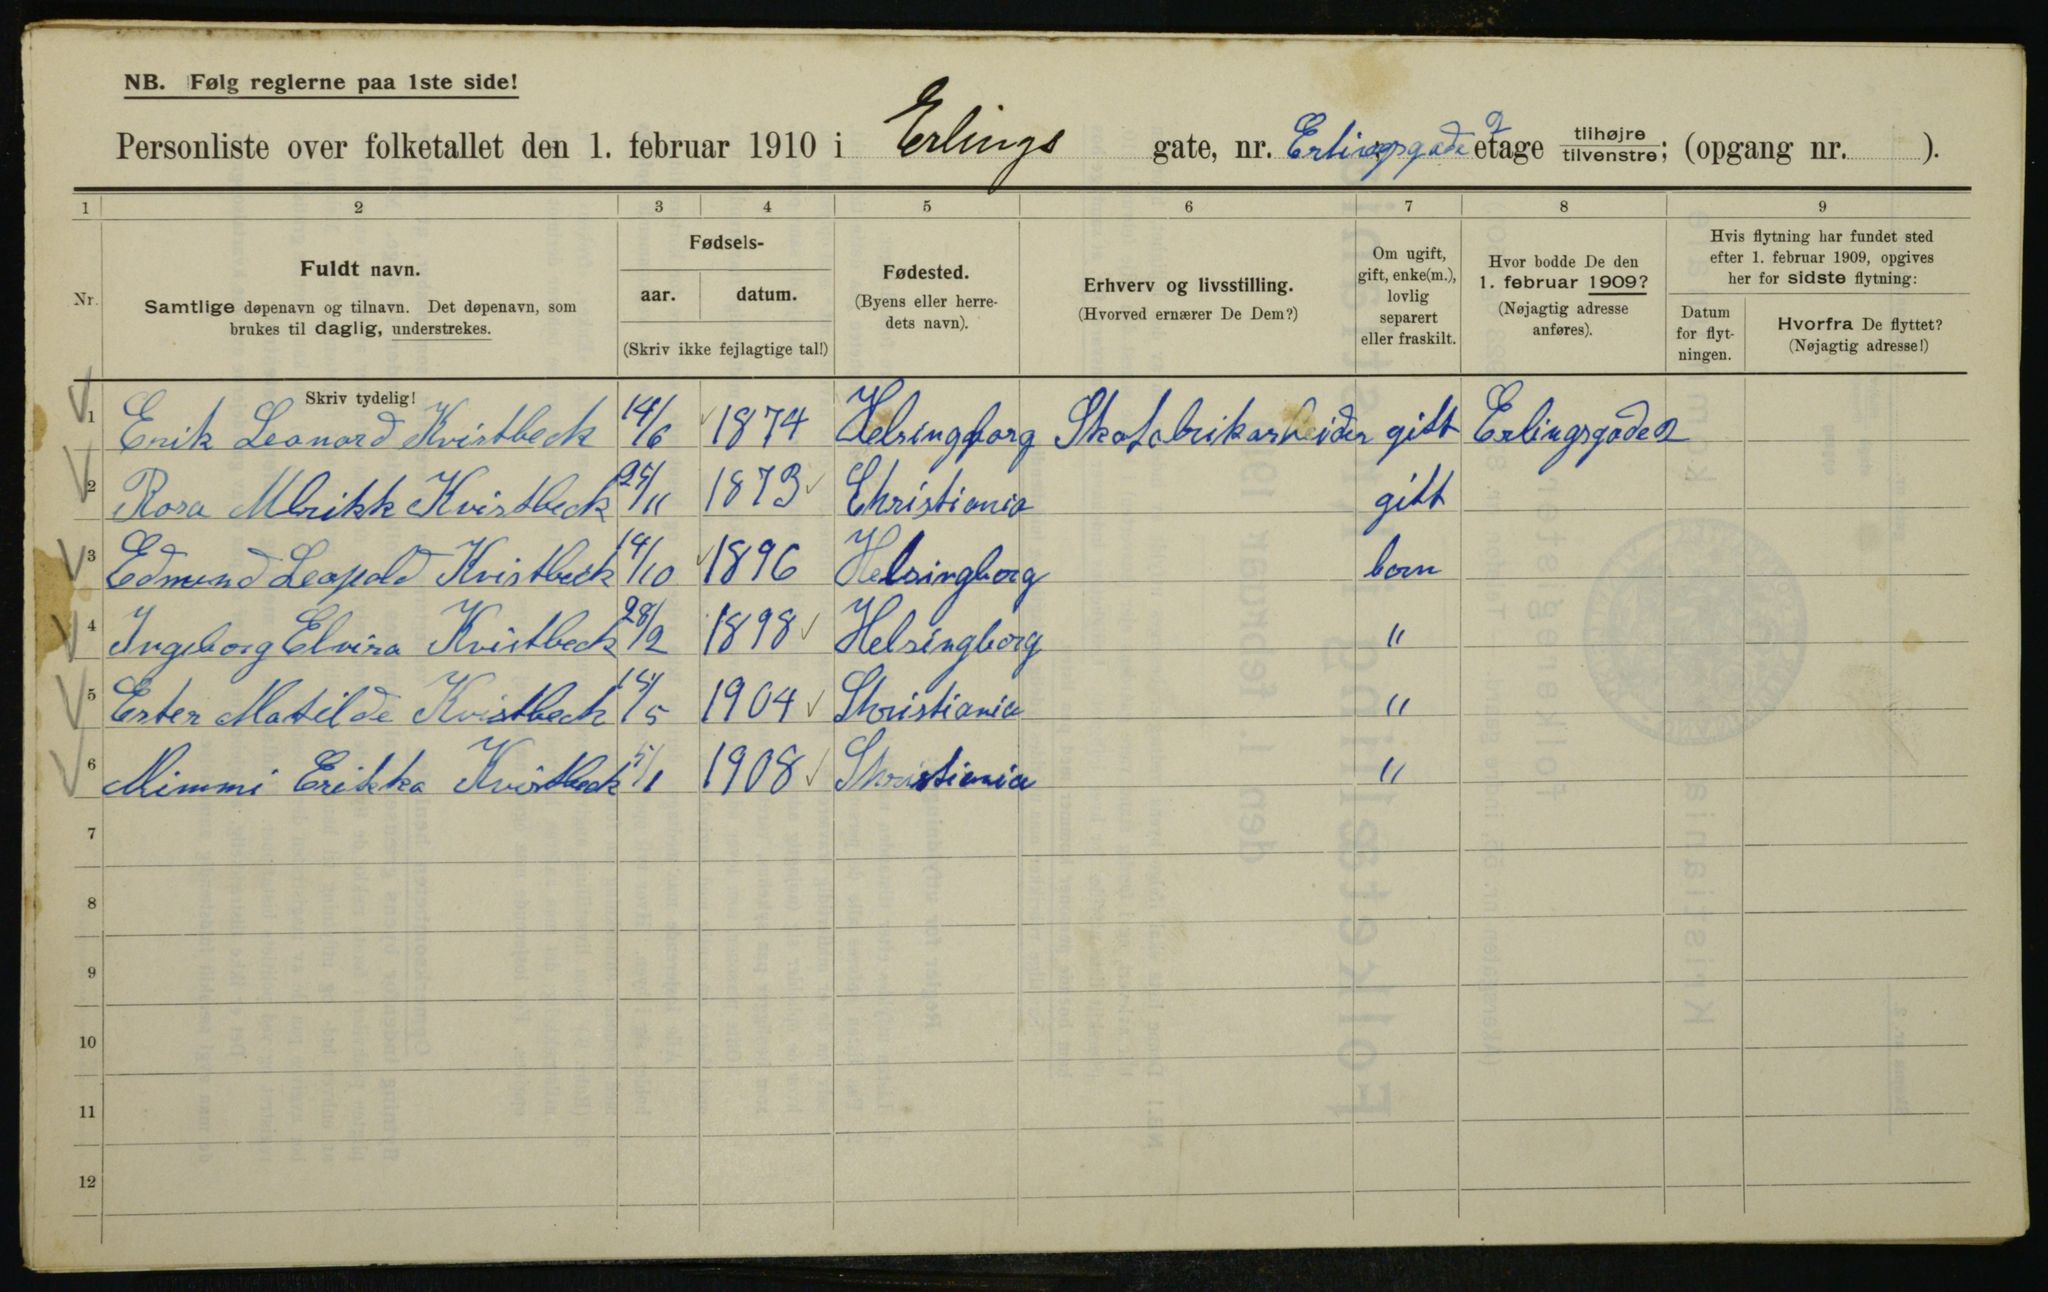 NB. Følg reglerne paa 1ste side!
Personliste over folketallet den 1. februar 1910 i Erlings gate, nr. Erlingsgade 2 etage tilhøjre/tilvenstre; (opgang nr. ).
1 2 3 4 5 6 7 8 9
Nr. Fuldt navn. Samtlige døpenavn og tilnavn. Det døpenavn, som brukes til daglig, understrekes.
Fødsels- aar. datum. (Skriv ikke fejlagtige tal!)
Fødested. (Byens eller herredets navn).
Erhverv og livsstilling. (Hvorved ernærer De Dem?)
Om ugift, gift, enke(m.), lovlig separert eller fraskilt.
Hvor bodde De den 1. februar 1909? (Nøjagtig adresse anføres).
Hvis flytning har fundet sted efter 1. februar 1909, opgives her for sidste flytning:
Datum for flytningen. Hvorfra De flyttet? (Nøjagtig adresse!)
Skriv tydelig!
1 Erik Leonard Kvistbeck 14/6 1874 Helsingborg Skofabrikarbeider gift Erlingsgade 2
2 Rosa Ulrikk Kvistbeck /11 1873 Christiania gift
3 Edmund Leopold Kvistbeck 14/10 1896 Helsingborg born
4 Ingeborg Elvira Kvistbeck 28/2 1898 Helsingborg "
5 Ester Matilde Kvistbeck /5 1904 Christiania "
6 Mimmi Erikka Kvistbeck 5/1 1908 Christiania "
7
8
9
10
11
12